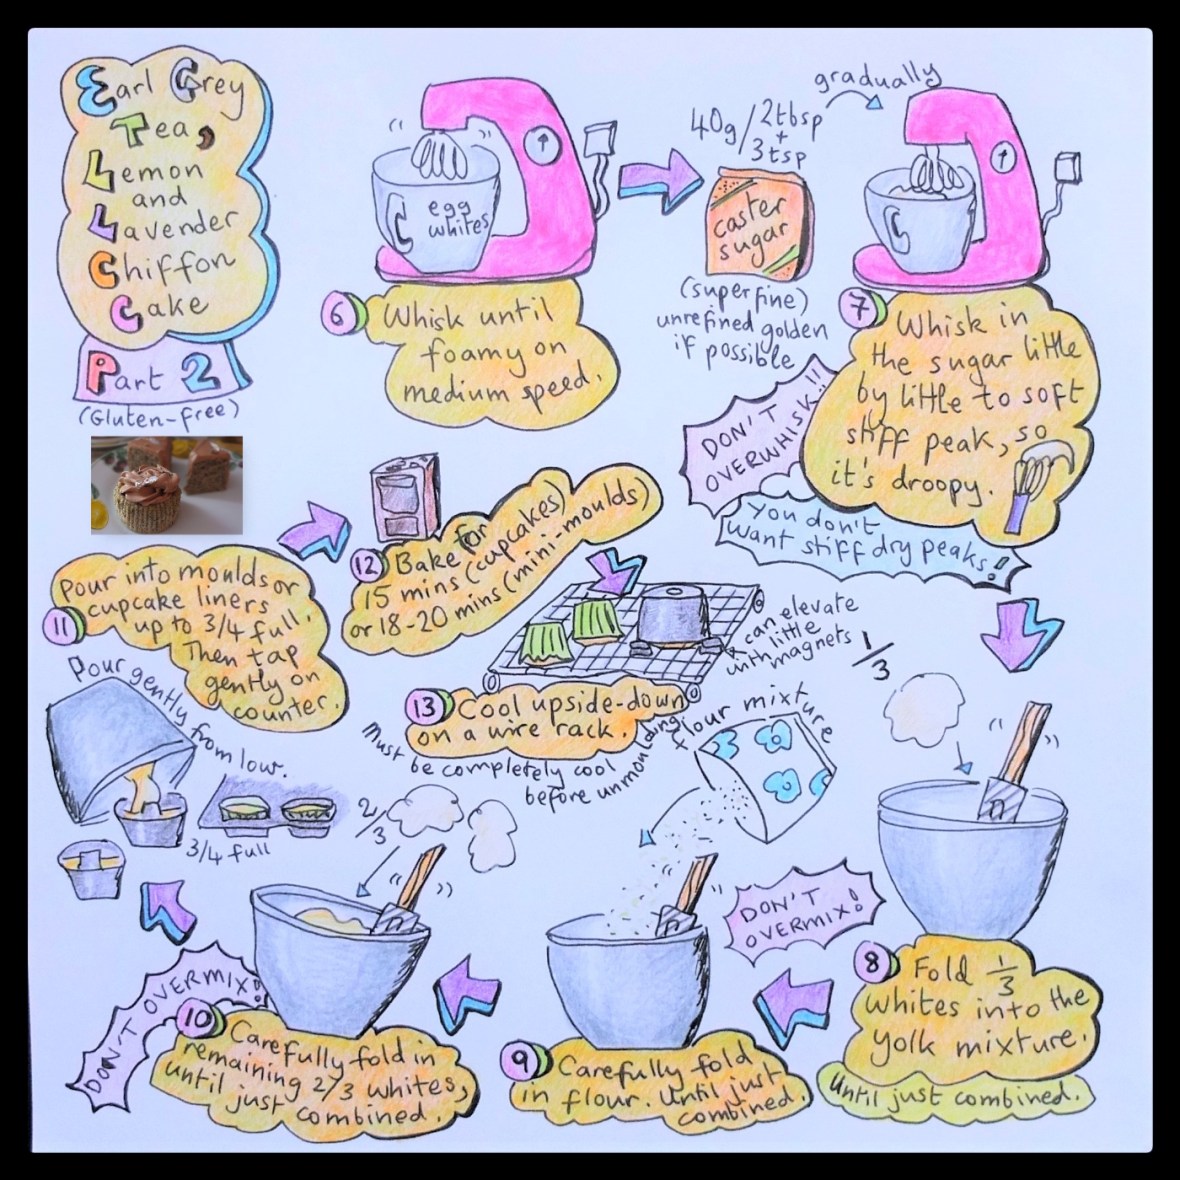 Earl Grey
Tea,
Lemon
and
Lavender
Chiffon
Cake
Part 2
(Gluten-free)
egg
whites
6
Whisk until
foamy on
medium speed.
40g/2tbsp
+
3tsp
caster
sugar
(superfine)
unrefined golden
if possible
gradually
7
Whisk in
the sugar little
by little to soft
stiff peak, so
it's droopy.
DON'T
OVERWHISK!!
You don't
want stiff dry peaks!
1/3
8
Fold 1/3
whites into the
yolk mixture.
Until just combined.
DON'T
OVERMIX!
flour mixture
9
Carefully fold
in flour. Until just
combined.
2/3
10
Carefully fold in
remaining 2/3 whites,
until just
combined.
DON'T OVERMIX!
11
Pour into moulds or
cupcake liners
up to 3/4 full.
Then tap
gently on
counter.
Pour gently from low.
3/4 full
12
Bake for
15 mins (cupcakes)
or 18-20 mins (mini-moulds)
can elevate
with little
magnets
13
Cool upside-down
on a wire rack.
Must be completely cool
before unmoulding